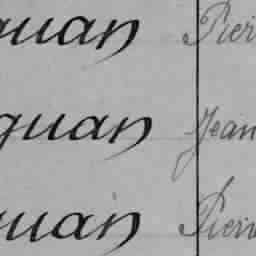 quan Pier
quan Jean
quan Pierr